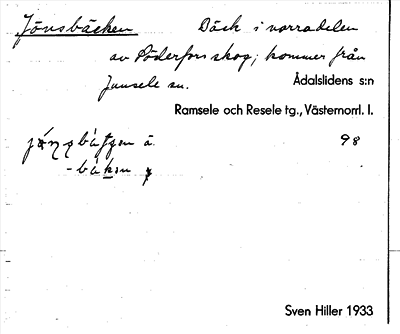 Jönsbäcken Bäck i norradelen
av Söderfors skog; kommer från
Junsele sn. Ådalslidens s:n
Ramsele och Resele tg., Västernorrl. l.
98
Sven Hiller 1933